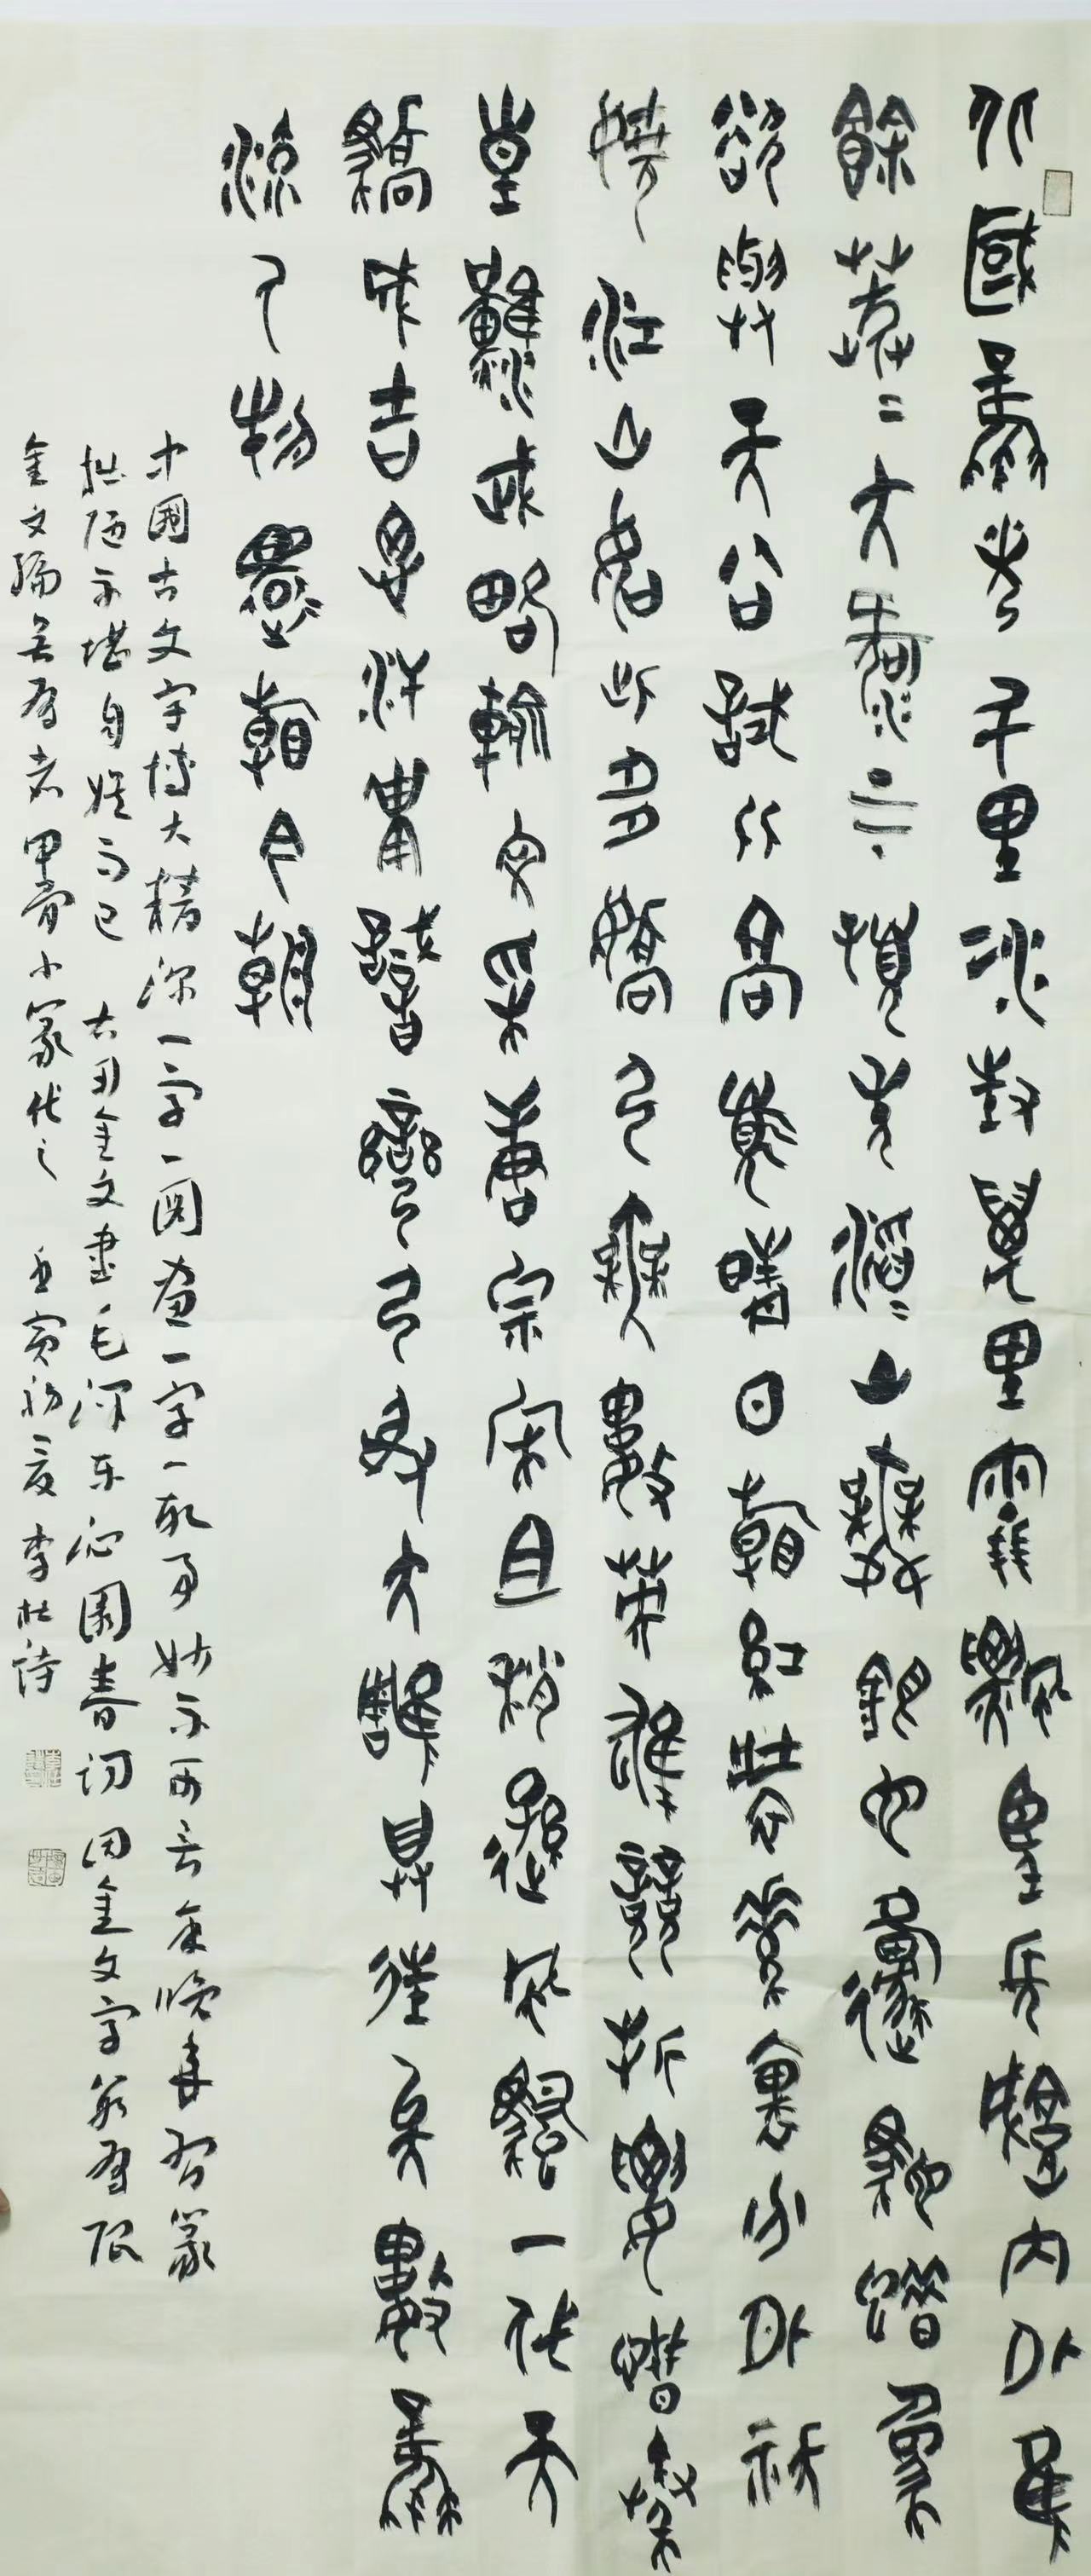 北國風光千里冰封萬里雪飄望長城內外惟
餘莽〻大河上下頓失滔〻山舞銀蛇原馳蠟象
欲與天公試比高須晴日看紅裝素裹分外妖
嬈江山如此多嬌引無數英雄競折腰惜秦
皇漢武略輸文采唐宗宋祖稍遜風騷一代天
驕成吉思汗識彎弓射大雕俱往矣數風
流人物還看今朝
中國古文字博大精深一字一圖畫一字一故事妙不可言余晚年習篆
拙陋不堪自娛而已 右用金文書毛澤東沁園春詞 因金文字有限
金文編無有者甲骨小篆代之 壬寅初夏 李杜詩